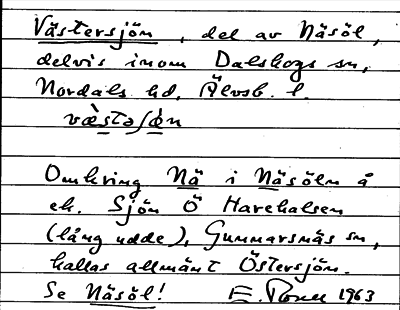 Västersjön, del av Näsöl,
delvis inom Dalskogs sn,
Nordals hd, Älvsb. l.
væ̀stəʃø̀n
Omkring Nä i Näsöln å
ek. Sjön Ö Harehalsen
(lång udde), Gunnarsnäs sn,
kallas allmänt Östersjön.
Se Näsöl! E. 1963